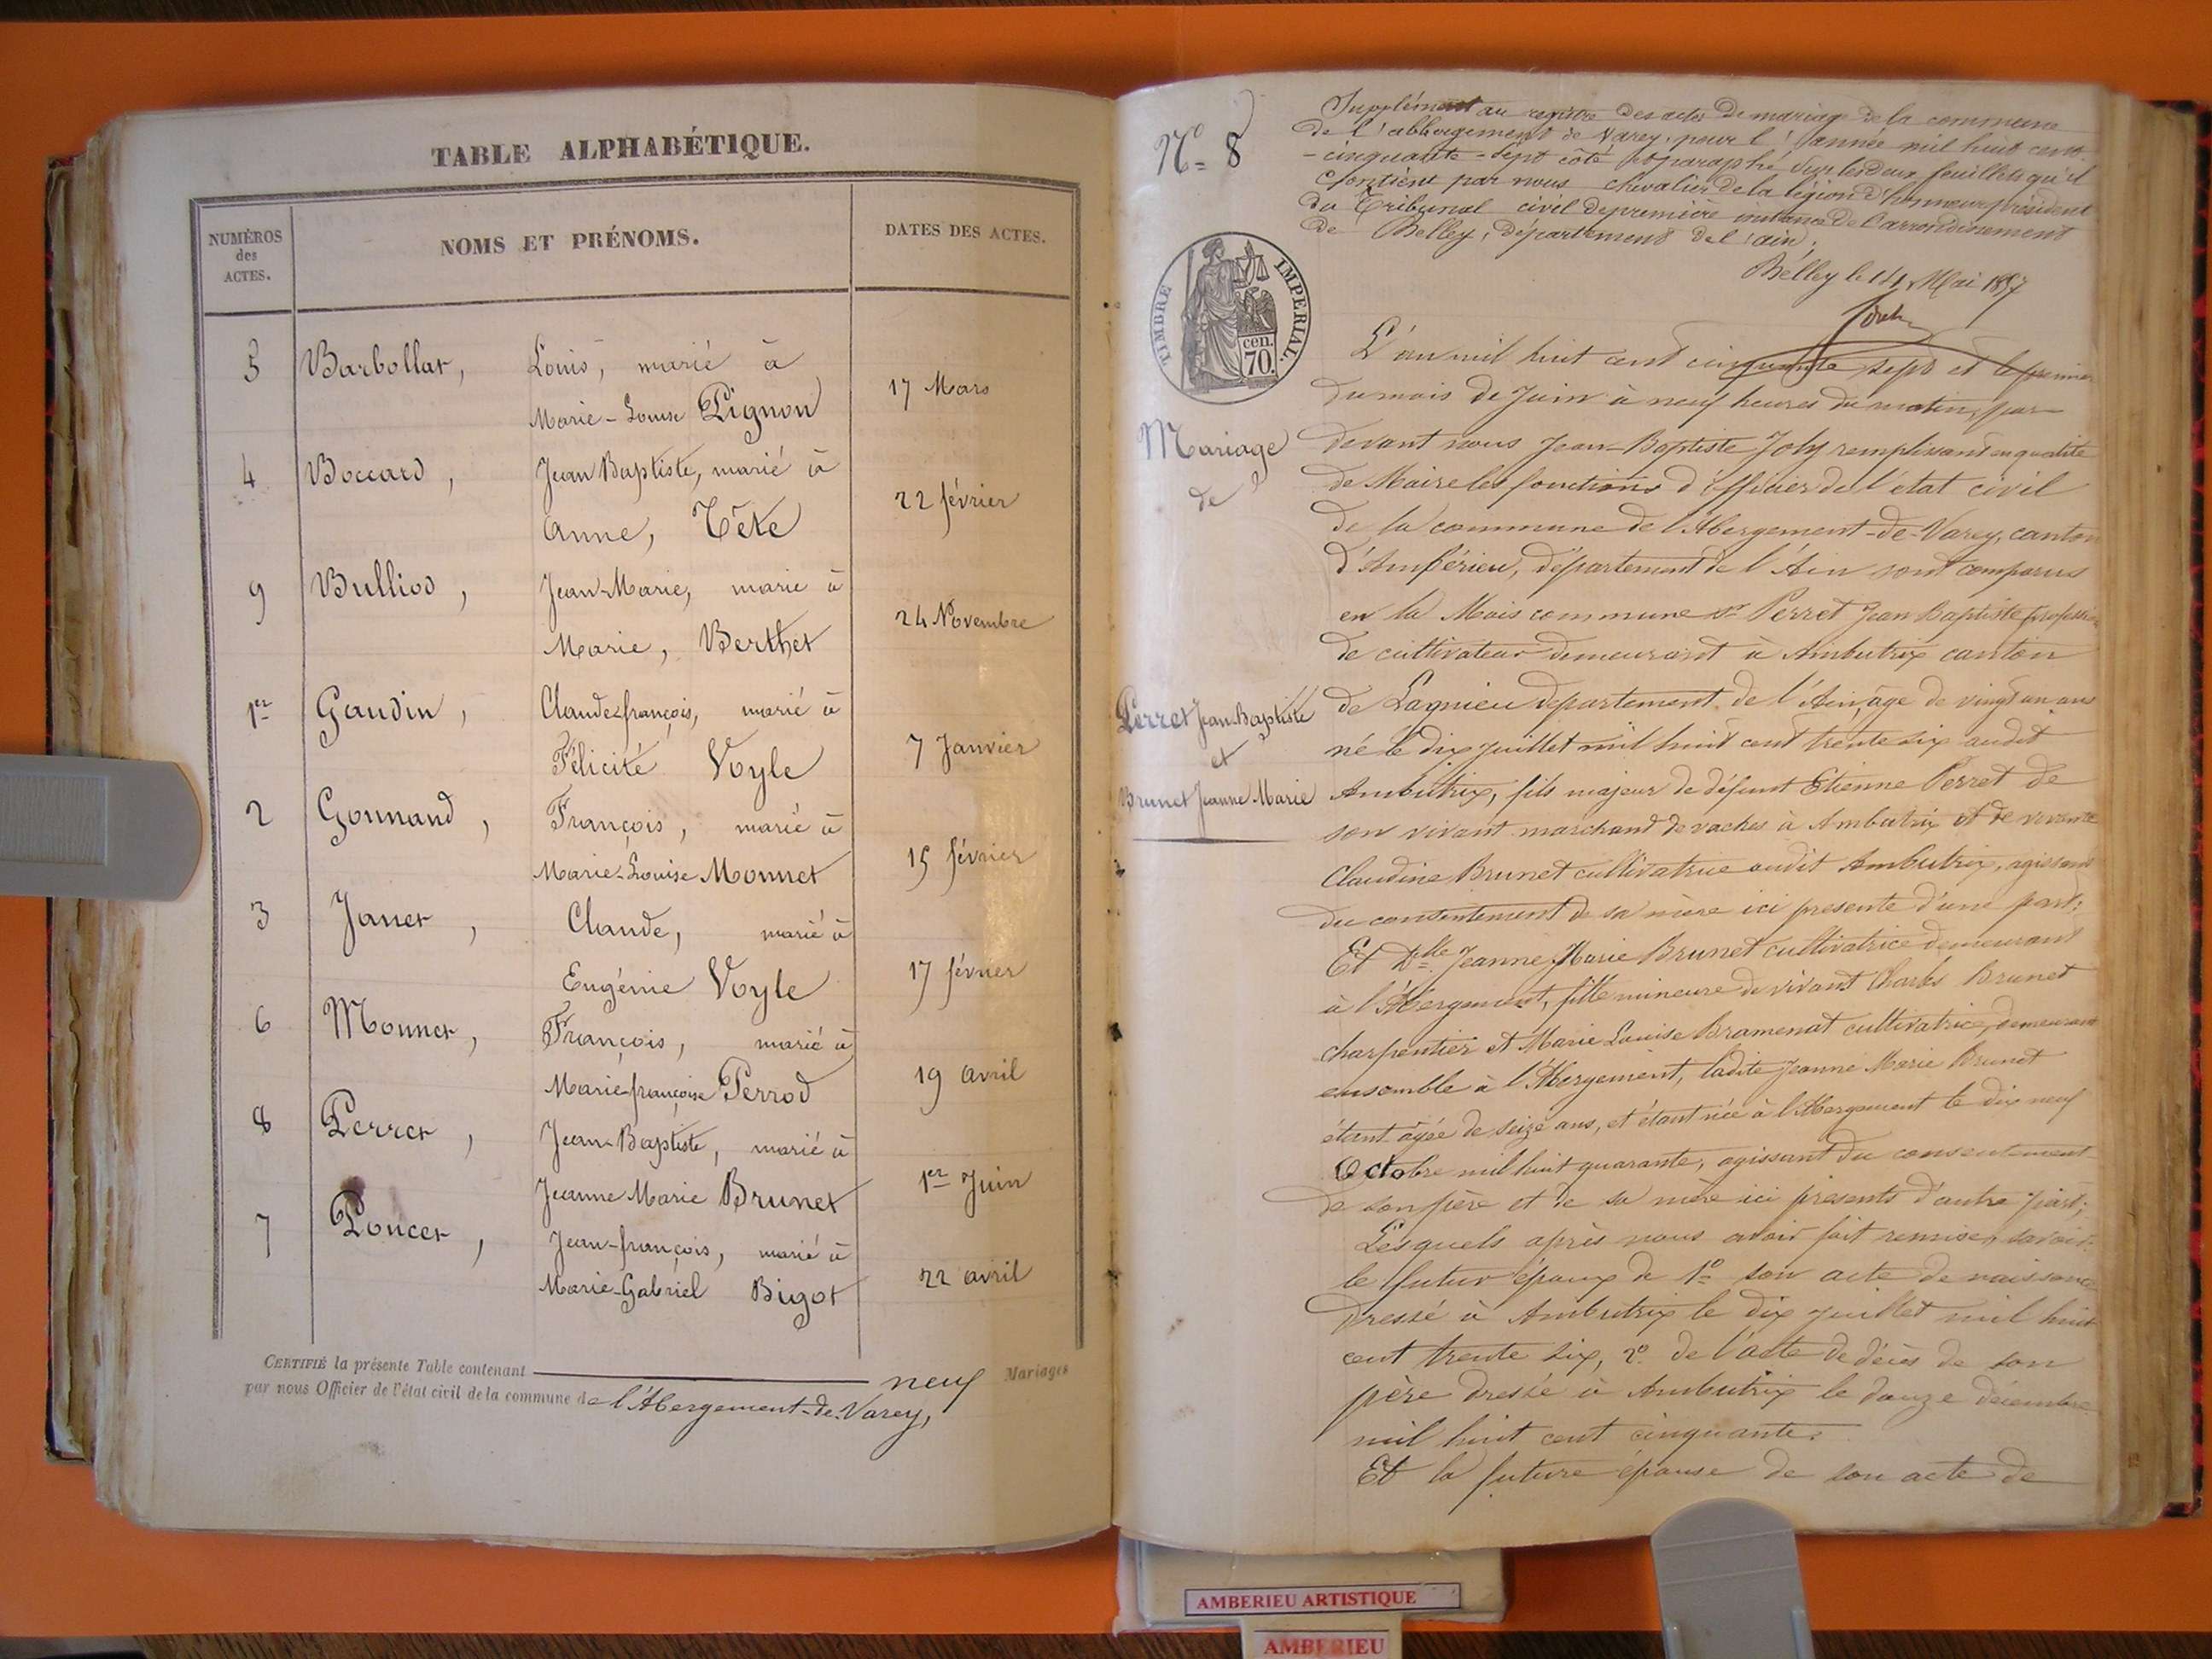 TABLE ALPHABÉTIQUE.
NUMÉROS des ACTES.
NOMS ET PRÉNOMS.
DATES DES ACTES.
5 Barbollat, Louis, marié à
Marie-Louise Pignon 17 Mars
4 Boccard, Jean Baptiste, marié à
Anne, Tête 22 février
9 Bulliod, Jean-Marie, marié à
Marie, Berthet 24 Novembre
1er Gaudin, Claude françois, marié à
Félicité Voyle 7 Janvier
2 Gonnand, François, marié à
Marie-Louise Monnet 15 février
3 Janet, Claude, marié à
Eugénie Voyle 17 février
6 Monnet, François, marié à
Marie françoise Perrod 19 avril
8 Perret, Jean-Baptiste, marié à
Jeanne Marie Brunet 1er Juin
7 Poncet, Jean-françois, marié à
Marie-Gabriel Bigot 22 avril
CERTIFIÉ la présente Table contenant neuf Mariages
par nous Officier de l'état civil de la commune de l'Abergement-de-Varey,
No 8
Supplément au registre des actes de mariage de la commune
de l'abbergement de Varey, pour l'année mil huit cent
-cinquante-sept côté et paraphé sur les deux feuillets qu'il
contient par nous chevalier de la légion d'honneur président
du Tribunal civil de première instance de l'arrondissement
de Belley, département de l'ain.
Belley le 14 Mai 1857
TIMBRE IMPERIAL.
cen. 70.
Mariage
de
Perret Jean-Baptiste
et
Brunet Jeanne Marie
L'an mil huit cent cinquante sept et le premier
du mois de Juin à neuf heures du matin, par
devant nous Jean-Baptiste Joly remplissant en qualité
de Maire les fonctions d'officier de l'état civil
de la commune de l'Abergement-de-Varey, canton
d'Ambérieu, département de l'Ain sont comparus
en la Mais commune sr Perret Jean Baptiste profession
de cultivateur demeurant à Ambutrix canton
de Lagnieu département de l'Ain, âgé de vingt un ans
né le dix juillet mil huit cent trente six audit
Ambutrix, fils majeur de défunt Etienne Perret de
son vivant marchand de vaches à Ambutrix et de vivante
Claudine Brunet cultivatrice audit Ambutrix, agissant
du consentement de sa mère ici présente d'une part;
Et Dlle Jeanne Marie Brunet cultivatrice demeurant
à l'Abergement, fille mineure de vivant Charles Brunet
charpentier et Marie Louise Bramenat cultivatrice, demeurant
ensemble à l'Abergement, ladite Jeanne Marie Brunet
étant âgée de seize ans, et étant née à l'Abergement le dix neuf
Octobre mil huit quarante, agissant du consentement
de son père et de sa mère ici présents d'autre part;
Lesquels après nous avoir fait remise, savoir:
le futur époux de 1o son acte de naissance
dressé à Ambutrix le dix juillet mil huit
cent trente six, 2o de l'acte de décès de son
père dressé à Ambutrix le douze décembre
mil huit cent cinquante.
Et la future épouse de son acte de
AMBERIEU ARTISTIQUE
AMBERIEU